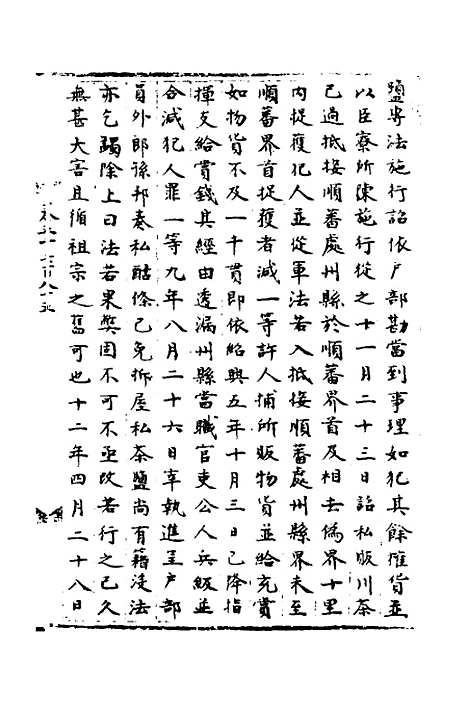 鹽專法施行詔依戶部勘當到事理如犯其餘榷貨並
以臣寮所陳施行從之十一月二十三日詔私販川茶
已過抵接順蕃處州縣於順蕃界首及相去僞界十里
內捉獲犯人並從軍法若入抵接順蕃處州縣界未至
順蕃界首捉獲者減一等許人捕所販物貨並給充賞
如物貨不及一千貫即依紹興五年十月三日已降指
揮支給賞錢其經由透漏州縣當職官吏公人兵級並
合減犯人罪一等九年八月二十六日宰執進呈戶部
員外郎孫邦奏私酤條已免拆屋私茶鹽尚有籍沒法
亦乞蠲除上曰法若果弊固不可不亟改若行之已久
無甚大害且循祖宗之舊可也十二年四月二十八日